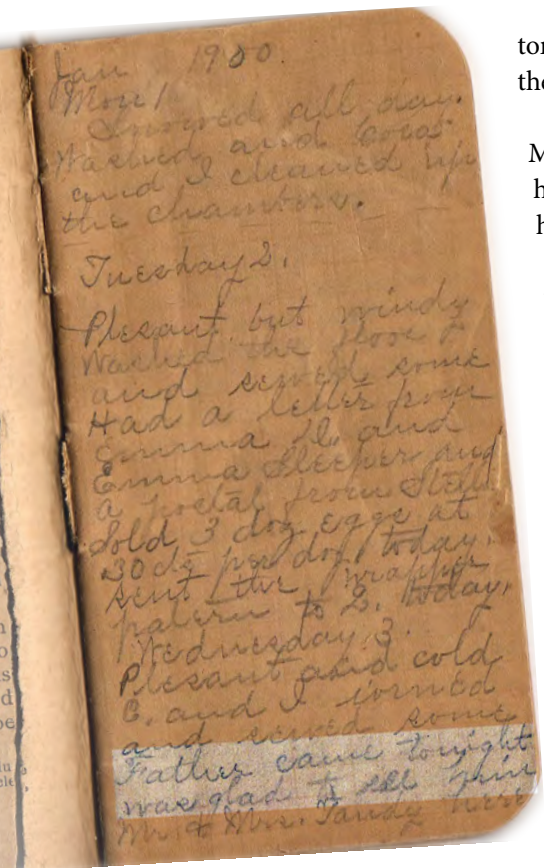 Jan 1900
Mon 1
Snowed all day.
Washed and Cora
and I cleaned up
the chambers.
Tuesday 2.
Plesant but windy
Washed the floor
and sewed some
Had a letter from
Emma H. and
Emma Sleeper and
a postal from Stella
Sold 3 doz eggs at
30cts per doz today.
Sent the wrapper
patern to today.
Wednesday 3.
Plesant and cold
C. and I ironed
and sewed some
Father came tonight
was glad to see him
Mr. & Mrs. Tandy here
tor
the
M
h
h
n
o
s
d
be